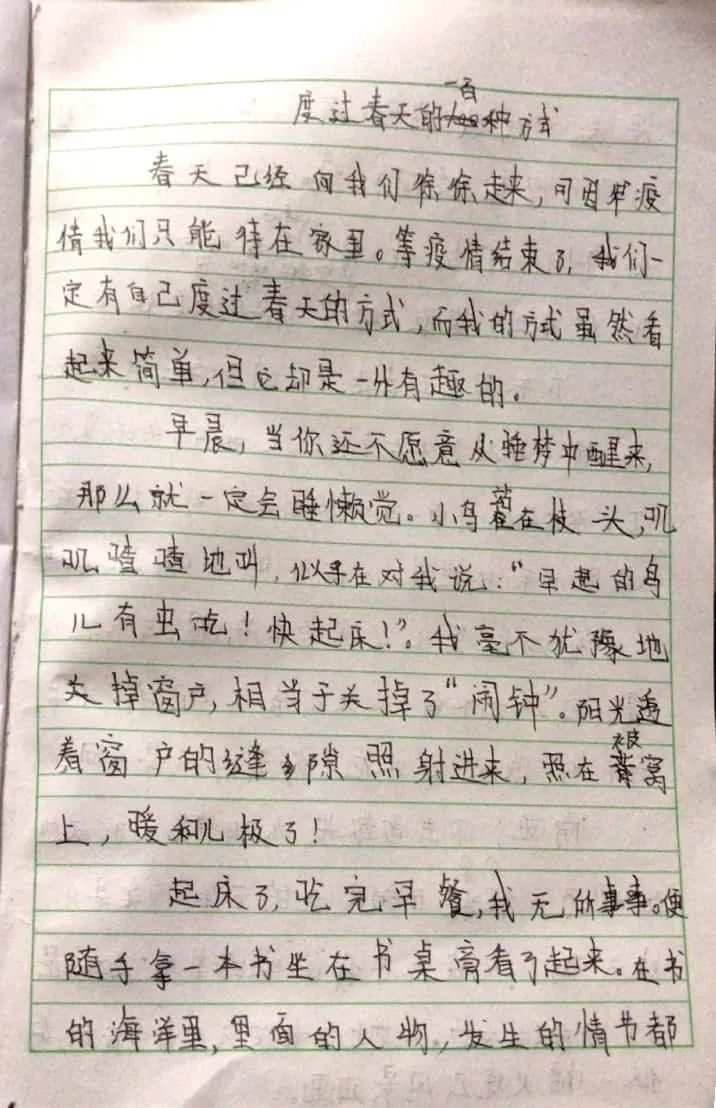 度过春天的一百种方式
春天已经向我们徐徐走来,可因为疫
情我们只能待在家里。等疫情结束了,我们一
定有自己度过春天的方式,而我的方式虽然看
起来简单,但它却是一外有趣的。
早晨,当你还不愿意从睡梦中醒来,
那么就一定会睡懒觉。小鸟蹲在枝头,叽
叽喳喳地叫,似乎在对我说:“早起的鸟
儿有虫吃!快起床!”。我毫不犹豫地
关掉窗户,相当于关掉了“闹钟”。阳光透
着窗户的缝隙照射进来,照在被窝
上,暖和儿极了!
起床了,吃完早餐,我无所事事。便
随手拿一本书坐在书桌旁看了起来。在书
的海洋里,里面的人物,发生的情节都